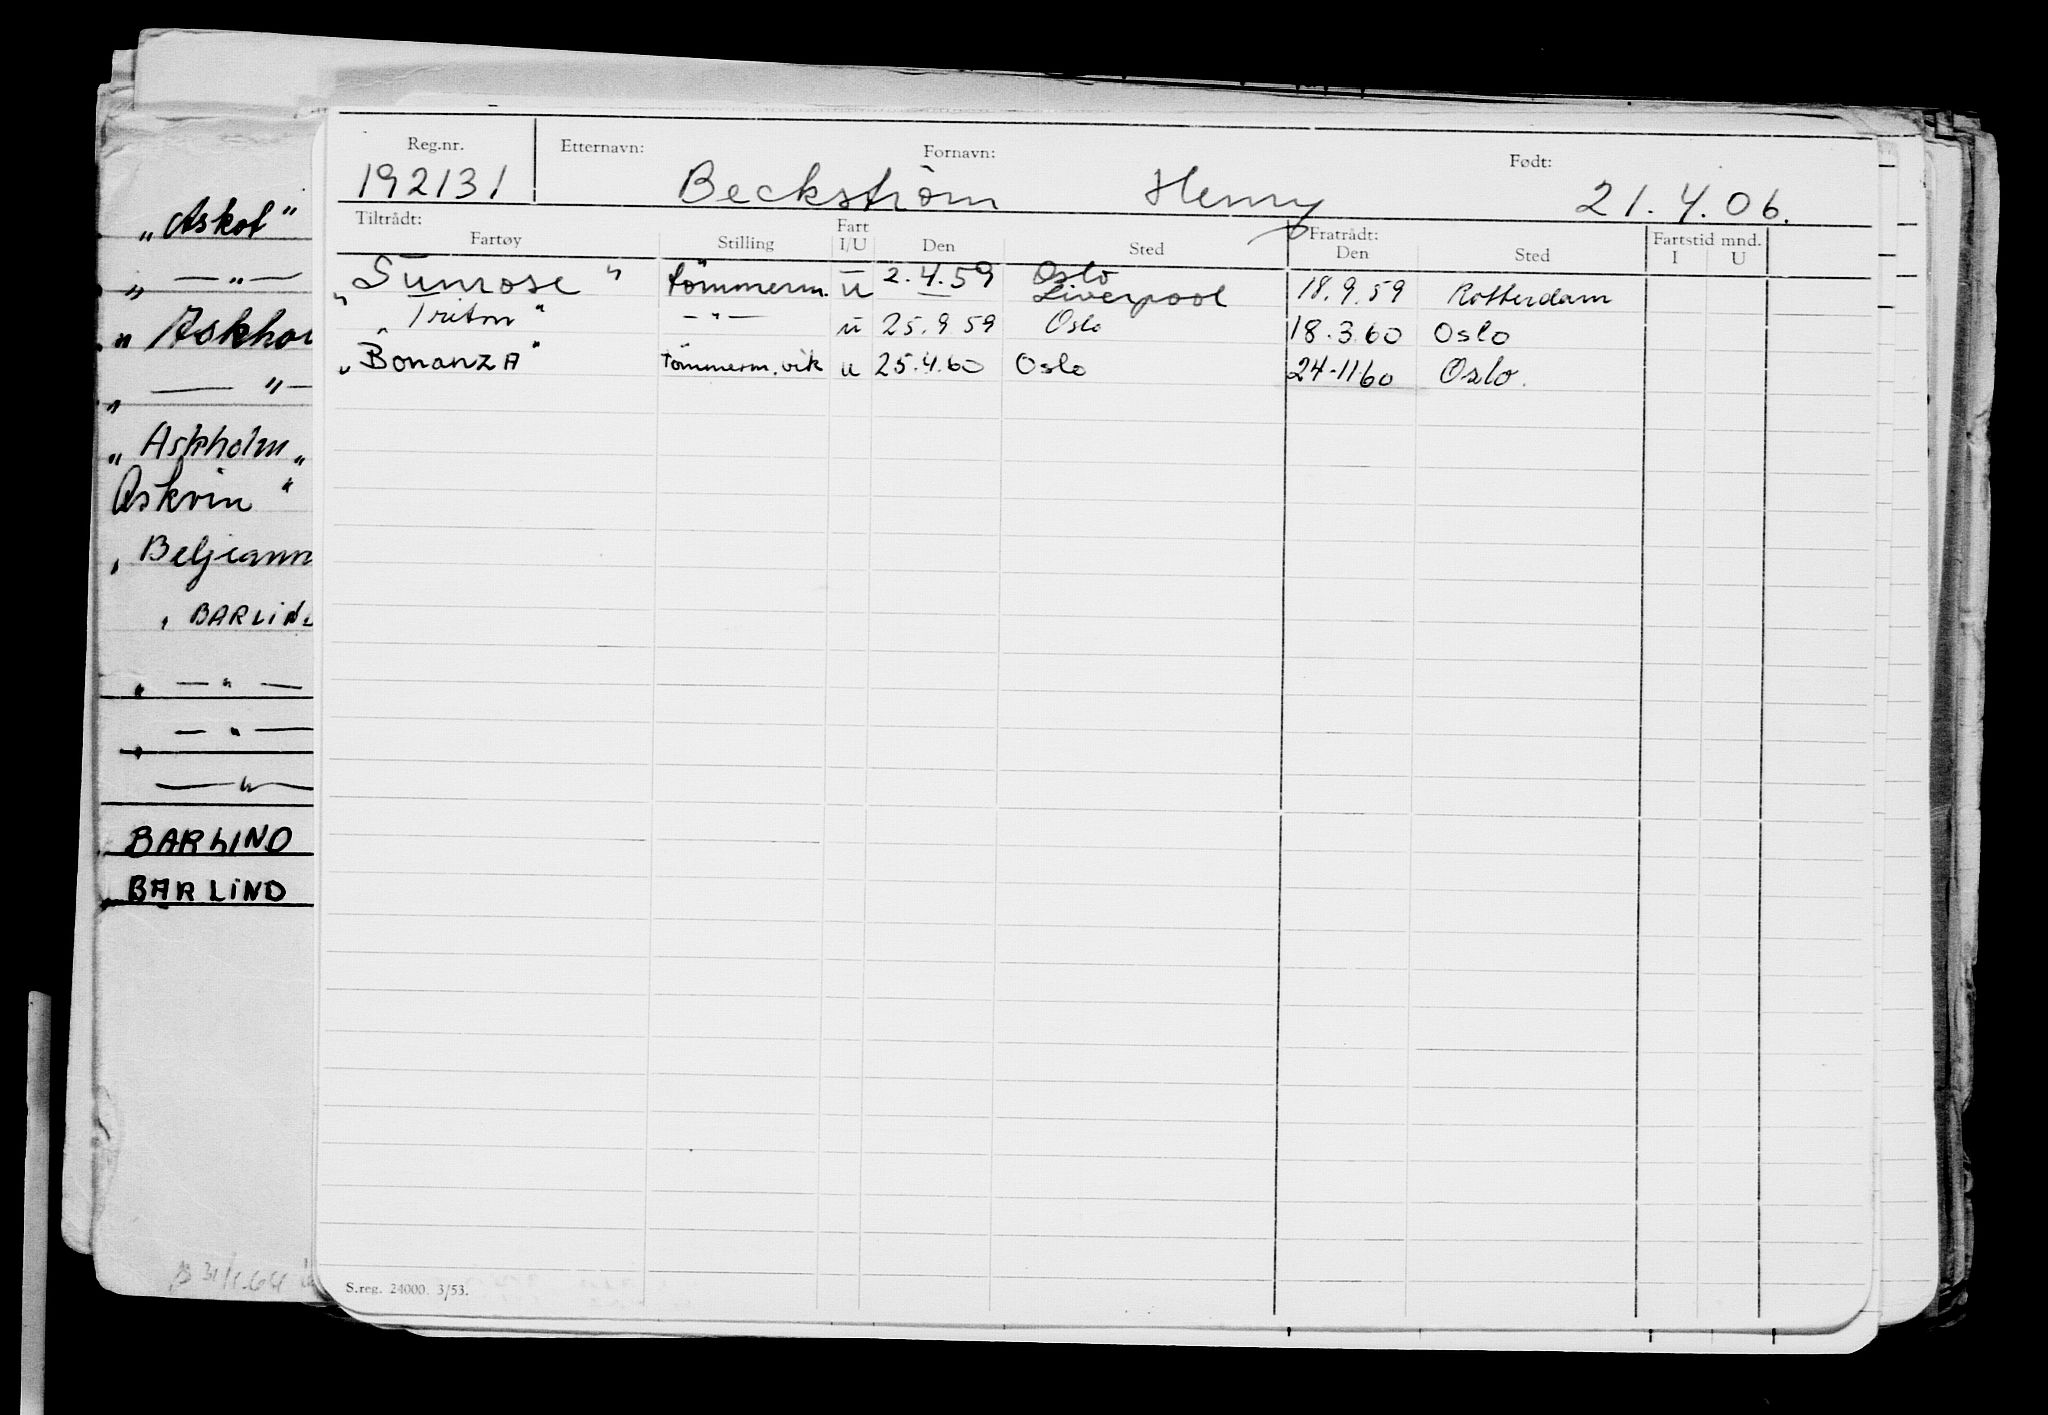 Reg.nr. Etternavn: Fornavn: Født:
192131 Beckström Henry 21.4.06.
Tiltrådt: Fratrådt: Fartstid mnd.
Fartøy Stilling Fart I/U Den Sted Den Sted I U
"Sunrose" tömmerm. u 2.4.59 Oslo Liverpool 18.9.59 Rotterdam
"Triton" —"— u 25.9.59 Oslo 18.3.60 Oslo
"Bonanza" tömmerm.vik u 25.4.60 Oslo 24-11 60 Oslo.
S.reg. 24000. 3/53.
„Askot"
„ —„—
„ Askho
„ — „ —
„ Askholm „
Askvin "
„ Beljeann
„ BARLIND
„ — " —
— " —
— " —
BARLIND
BARLIND